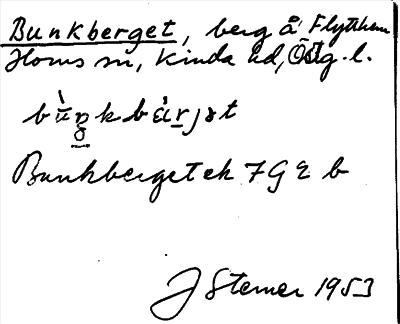 Bunkberget, berg å Flythem
Horns sn, Kinda hd, Östg. l.
Bunkberget ek 7 G 2 b
J Sterner 1953